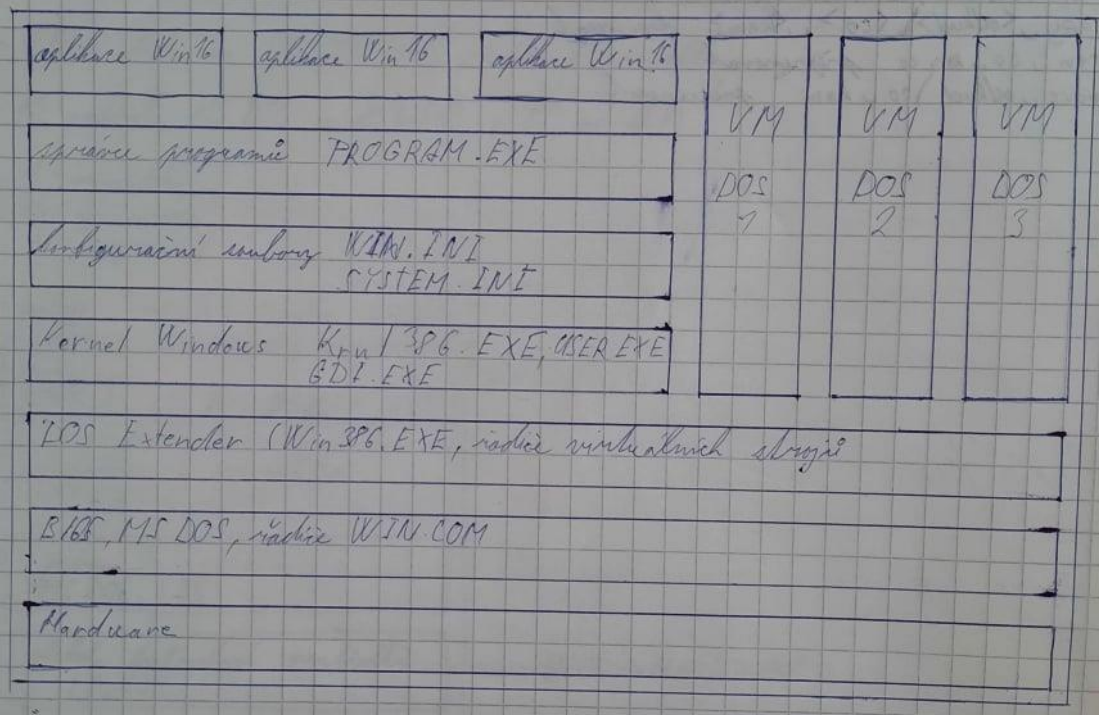 aplikace Win16
aplikace Win 16
aplikace Win 16
VM
DOS
1
VM
DOS
2
VM
DOS
3
správce programů PROGRAM.EXE
konfigurační soubory WIN.INI
SYSTEM.INI
Kernel Windows Krnl 386.EXE, USER EXE
GDI.EXE
DOS Extender (Win386.EXE, řadiče virtuálních strojů
BIOS, MS DOS, řadiče WIN.COM
Hardware